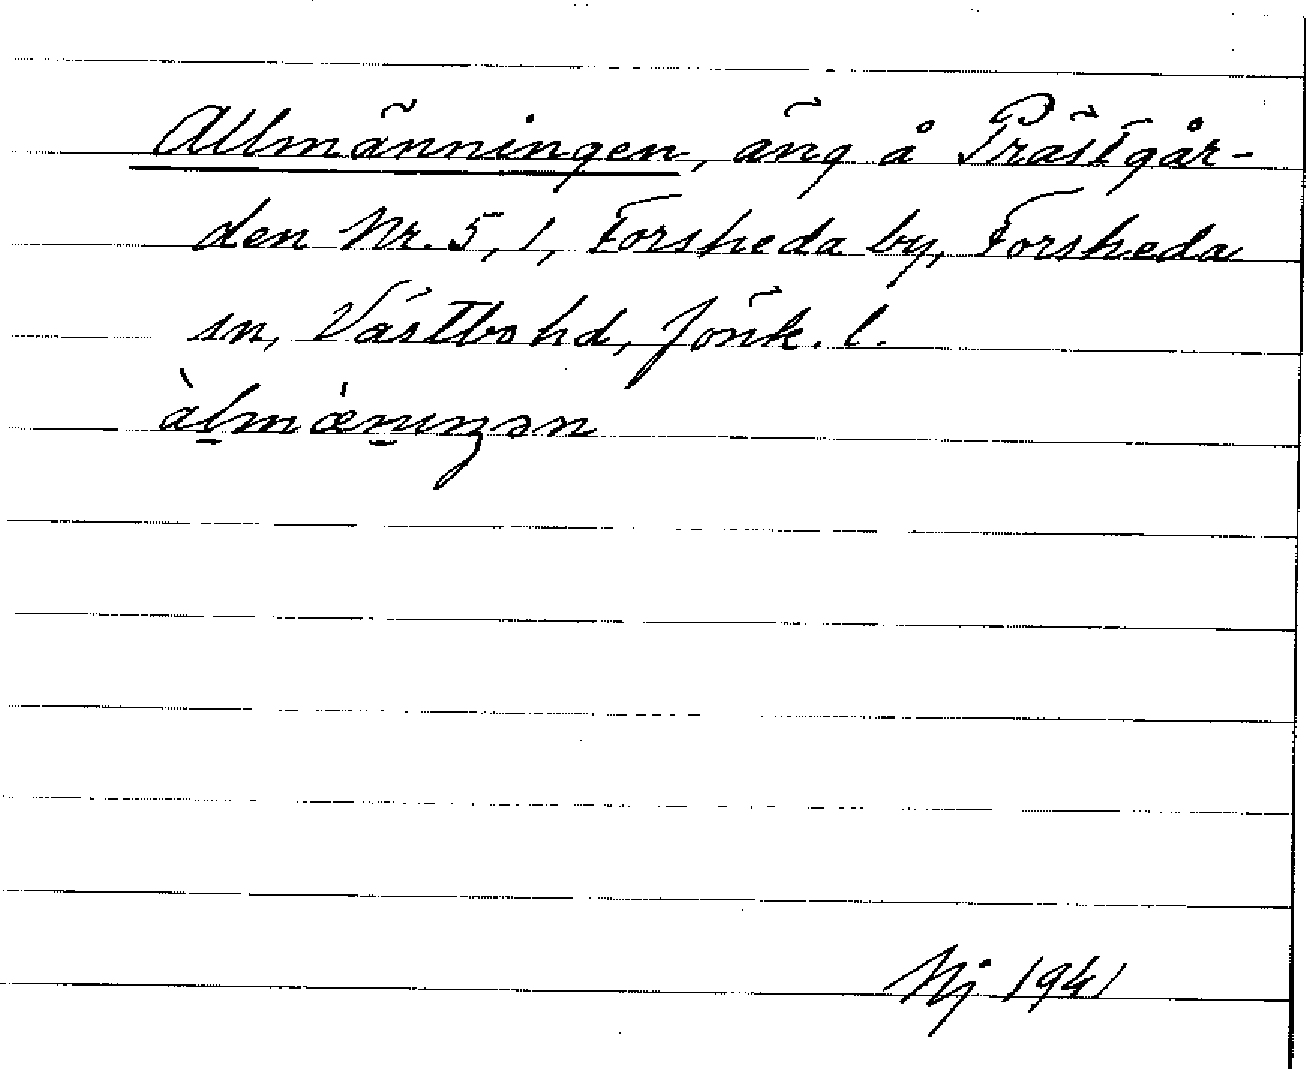 Allmänningen, äng å Prästgår-
den Nr. 5, 1, Forsheda by, Forsheda
sn, Västbo hd, Jönk. l.
àl̠mǽn̠ıŋən
Nj 1941